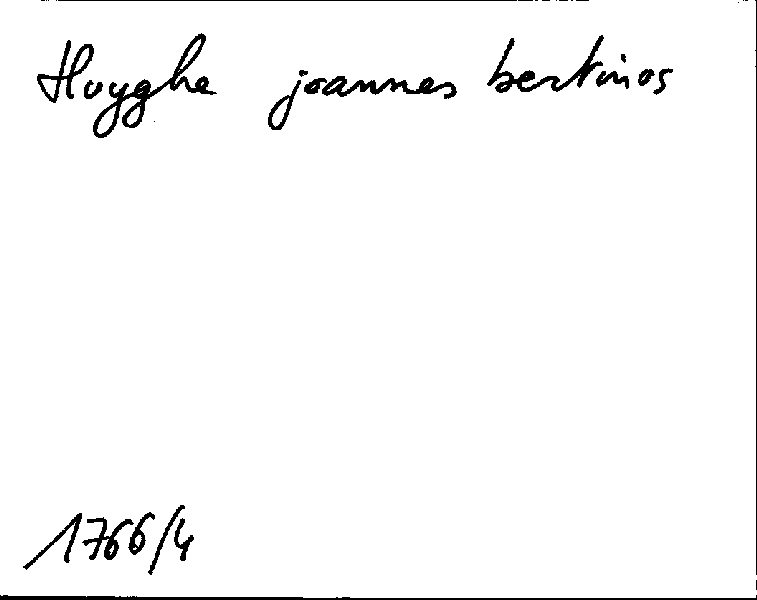 Huyghe joannes bertinus
1766/4